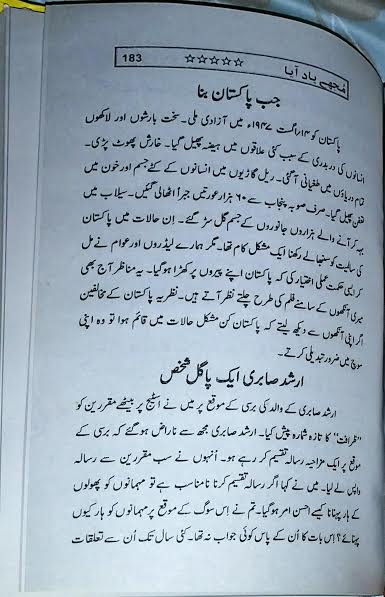 مجھے یاد آیا ☆☆☆☆☆ 183
جب پاکستان بنا
پاکستان کو ۱۴اگست ۱۹۴۷ء میں آزادی ملی۔ سخت بارشوں اور لاکھوں
انسانوں کی دربدری کے سبب کئی علاقوں میں ہیضہ پھیل گیا۔ خارش پھوٹ پڑی۔
تمام دریاؤں میں طغیانی آگئی۔ ریل گاڑیوں میں انسانوں کے کٹے جسم اور خون میں
تعفن پھیل گیا۔ صرف صوبہ پنجاب سے ۶۰ ہزار عورتیں جبراً اٹھالی گئیں۔ سیلاب میں
بہہ کر آنے والے ہزاروں جانوروں کے جسم گل سڑ گئے۔ اِن حالات میں پاکستان
کی سالمیت کو سنبھالے رکھنا ایک مشکل کام تھا۔ مگر ہمارے لیڈروں اور عوام نے مل
کر ایسی حکمت عملی اختیار کی کہ پاکستان اپنے پیروں پر کھڑا ہوگیا۔ یہ مناظر آج بھی
میری آنکھوں کے سامنے فلم کی طرح چلتے نظر آتے ہیں۔ نظریہ پاکستان کے مخالفین
اگر اپنی آنکھوں سے دیکھ لیتے کہ پاکستان کن مشکل حالات میں قائم ہوا تو وہ اپنی
سوچ میں ضرور تبدیلی کرتے۔
ارشد صابری ایک پاگل شخص
ارشد صابری کے والد کی برسی کے موقع پر میں نے اسٹیج پر بیٹھے مقررین کو
”ظرافت“ کا تازہ شمارہ پیش کیا۔ ارشد صابری مجھ سے ناراض ہوگئے کہ برسی کے
موقع پر ایک مزاحیہ رسالہ تقسیم کر رہے ہو۔ اُنہوں نے سب مقررین سے رسالہ
واپس لے لیا۔ میں نے کہا اگر رسالہ تقسیم کرنا نامناسب ہے تو مہمانوں کو پھولوں
کے ہار پہنانا کیسے احسن امر ہوگیا۔ تم نے اِس سوگ کے موقع پر مہمانوں کو ہار کیوں
پہنائے؟ اِس بات کا اُن کے پاس کوئی جواب نہ تھا۔ کئی سال تک اُن سے تعلقات